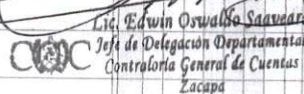 Lic. Edwin Oswaldo Saavedra
Jefe de Delegación Departamental
Contraloría General de Cuentas
Zacapa